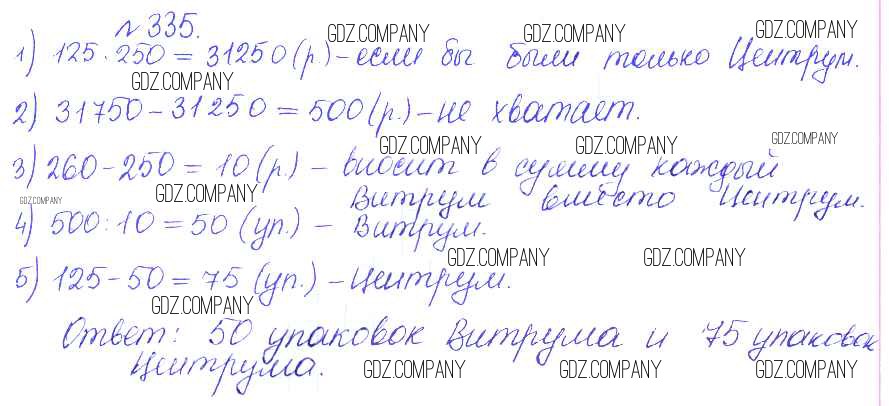 № 335.
GDZ.COMPANY GDZ.COMPANY GDZ.COMPANY
1) 125 · 250 = 31250 (р.) – если бы были только Центрум.
GDZ.COMPANY
2) 31750 – 31250 = 500 (р.) – не хватает.
GDZ.COMPANY GDZ.COMPANY GDZ.COMPANY
3) 260 – 250 = 10 (р.) – вносит в сумму каждый
GDZ.COMPANY GDZ.COMPANY Витрум вместо Центрум.
4) 500 : 10 = 50 (уп.) – Витрум.
GDZ.COMPANY GDZ.COMPANY
5) 125 – 50 = 75 (уп.) – Центрум.
GDZ.COMPANY
Ответ: 50 упаковок Витрума и 75 упаковок
Центрума.
GDZ.COMPANY GDZ.COMPANY GDZ.COMPANY